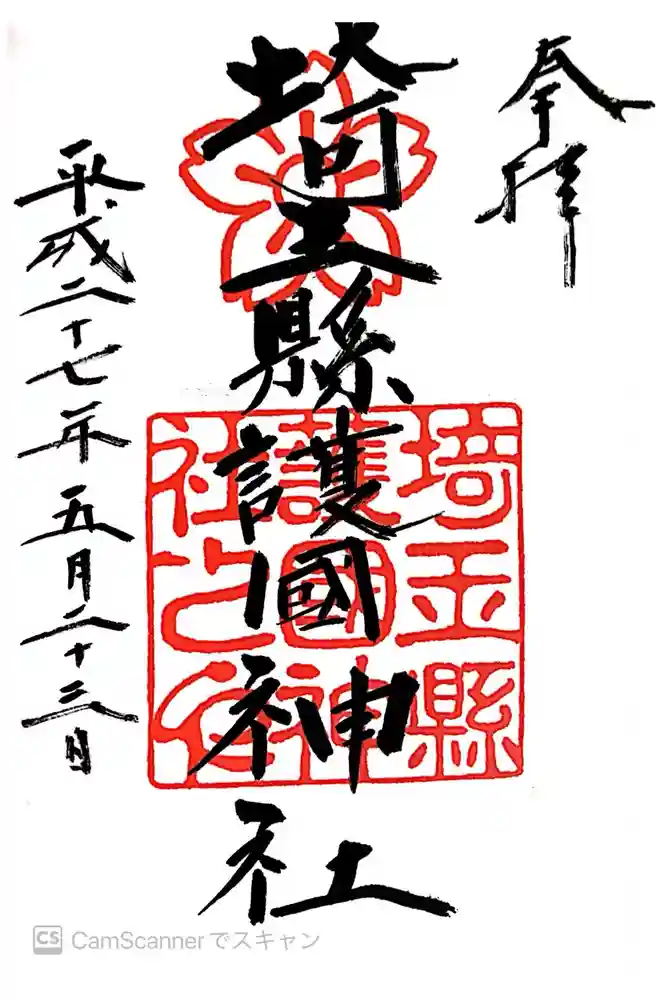 奉拝
埼玉縣護國神社
平成二十七年五月二十三日
埼玉縣
護國神
社之印
CS CamScannerでスキャン